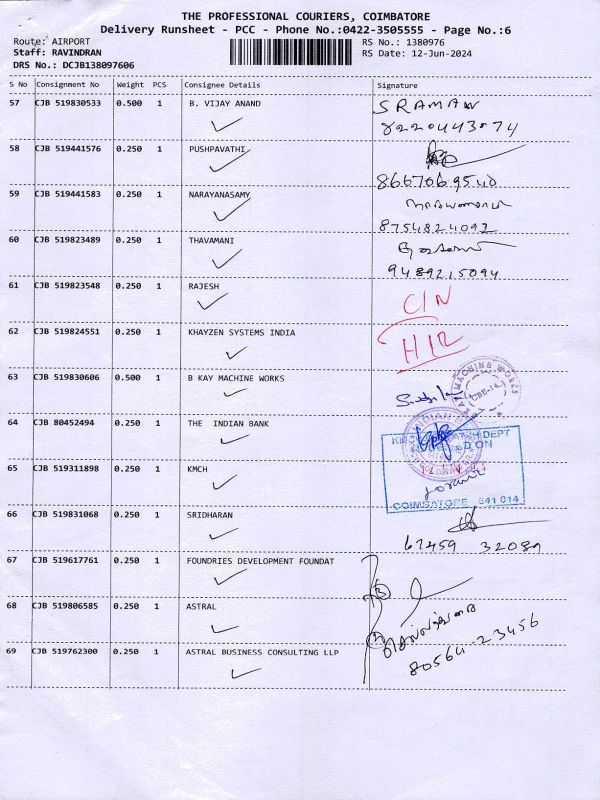 THE PROFESSIONAL COURIERS, COIMBATORE
Delivery Runsheet - PCC - Phone No.:0422-3505555 - Page No.:6
Route: AIRPORT RS No.: 1380976
Staff: RAVINDRAN RS Date: 12-Jun-2024
DRS No.: DCJB138097606
S No Consignment No Weight PCS Consignee Details Signature
57 CJB 519830533 0.500 1 B. VIJAY ANAND SRAMAN
8220443074
58 CJB 519441576 0.250 1 PUSHPAVATHI
8667069540
59 CJB 519441583 0.250 1 NARAYANASAMY
8754824092
60 CJB 519823489 0.250 1 THAVAMANI
9489215094
61 CJB 519823548 0.250 1 RAJESH CIN
62 CJB 519824551 0.250 1 KHAYZEN SYSTEMS INDIA HIR
63 CJB 519830606 0.500 1 B KAY MACHINE WORKS
MACHINE WORKS
CBE-14
64 CJB 80452494 0.250 1 THE INDIAN BANK
DEPT
65 CJB 519311898 0.250 1 KMCH
COIMBATORE 641 014
66 CJB 519831068 0.250 1 SRIDHARAN
67459 32089
67 CJB 519617761 0.250 1 FOUNDRIES DEVELOPMENT FOUNDAT
68 CJB 519806585 0.250 1 ASTRAL
80564-23456
69 CJB 519762300 0.250 1 ASTRAL BUSINESS CONSULTING LLP